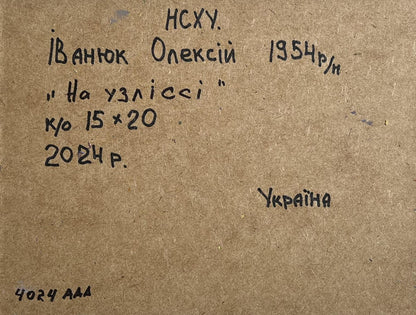 НСХУ.
Іванюк Олексій 1954 р/н
„На узліссі"
к/о 15×20
2024 р.
Україна
4024 ААА